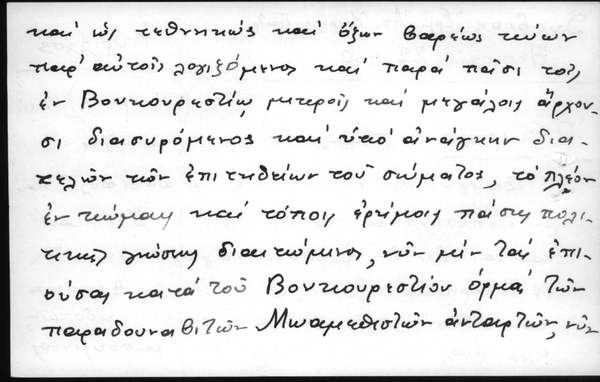 καὶ ὡς τεθνηκὼς καὶ ὄζων βαρέως πνέων
παρ' αὐτοῖς λογιζόμενος καὶ παρὰ πᾶσι τοῖς
ἐν Βουκουρεστίῳ μικροῖς καὶ μεγάλοις ἄρχου-
σι διασυρόμενος καὶ ὑπὸ ἀνάγκην δια-
τελῶν τῶν ἐπιτηδείων τοῦ σώματος, τὸ πλέον
ἐν κώμαις καὶ τόποις ἐρήμοις πάσης πολι-
τικῆς γνώσης διαιτώμενος, νῦν μὲν τὰς ἐπι-
ούσας κατὰ τοῦ Βουκουρεστίου ὁρμὰς τῶν
παραδουναβιτῶν Μωαμεθιστῶν ἀνταρτῶν, νῦν